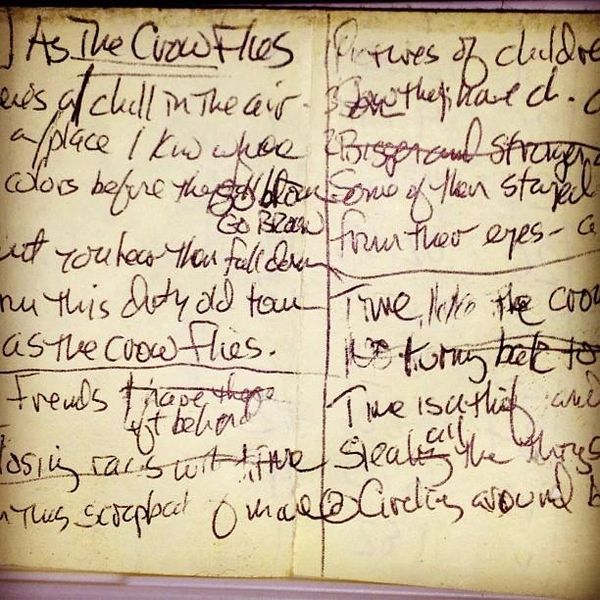 ] As The Crow Flies
a chill in the air -
a place I know where
colors before they fall down
GO BROWN
you hear them fall down
this dusty old town
as the crow flies.
Friends I have
left behind
losing races with time
this scrapbook of mine
Pictures of childre
3 have ch.
2 Bigger and stronger
Some of them stayed
from their eyes -
Time, the crow
No turning back to
Time is a thief and
Stealing all the things
Circling around b